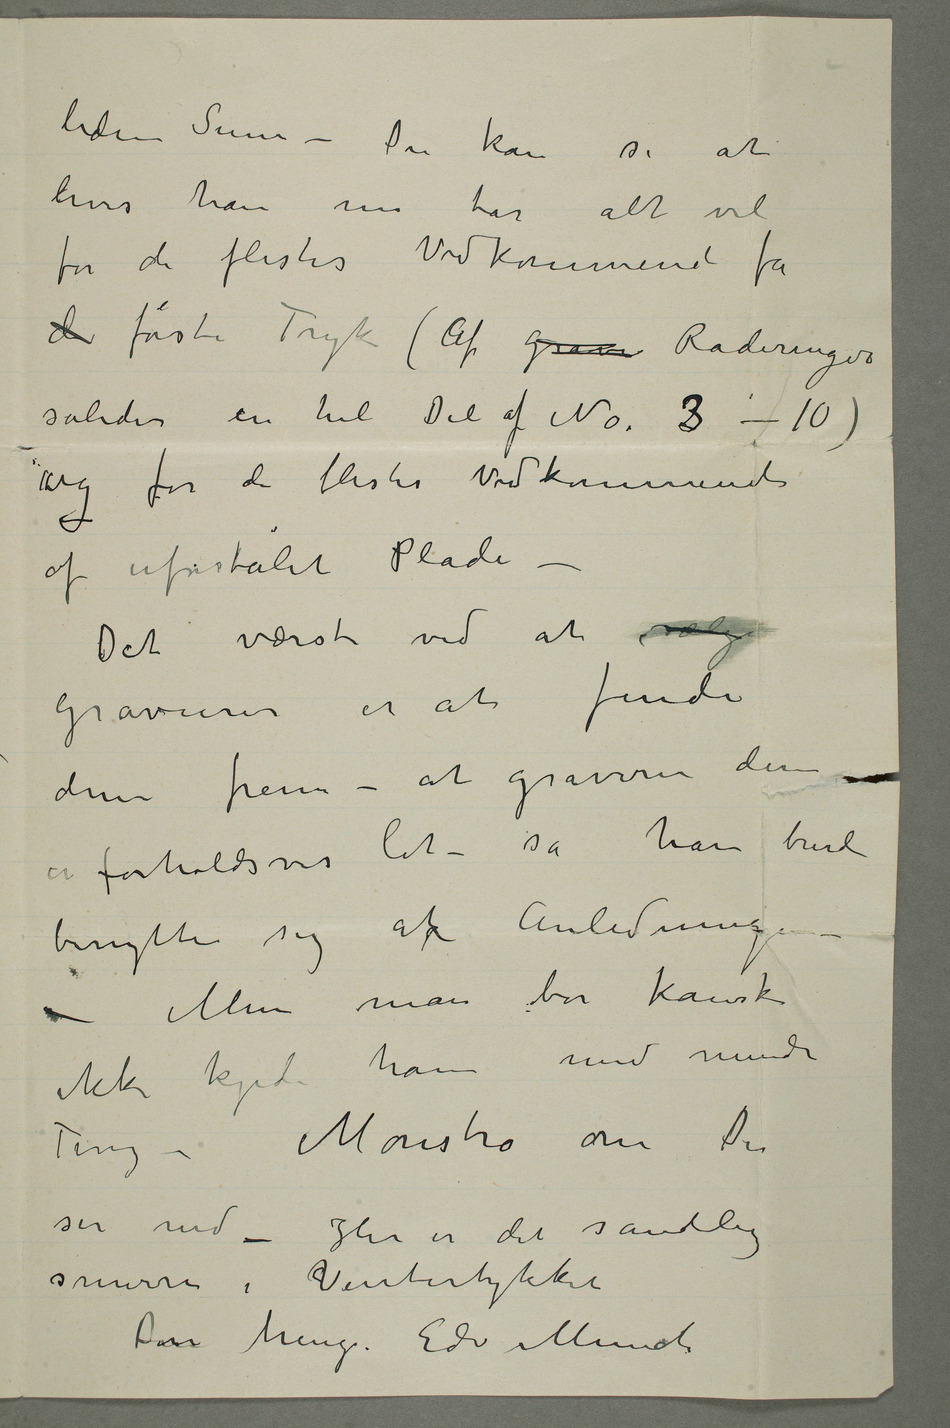 liden Sum – Du kan si at
hvis han nu tar alt vil
for de flestes Vedkommend få
de første Tryk (Af grave Raderinger
således en hel Del af No. 3 – 10)
og for de flestes Vedkommende
af uforstålet Plade –
Det værste ved at sælge
gravurer er at finde
dem frem – at gravere dem
er forholdsvis let – så han burde
benytte sig af Anledningen –
– Men man bør kanske
ikke kjede ham med mindre
Ting – Monstro om Du
ser ned – Her er det sandelig
smurre i Ventestykket
Din heng. Edv Munch